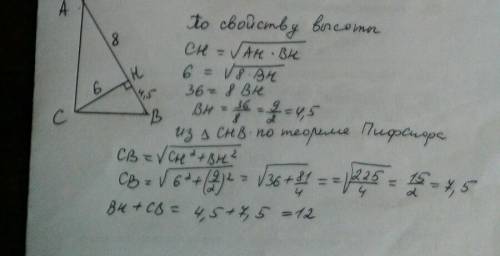 A
8
H
6
4,5
C
B
По свойству высоты
CH = √AH · BH
6 = √8 · BH
36 = 8 BH
BH = 36/8 = 9/2 = 4,5
из △ CHB по теореме Пифагора
CB = √CH² + BH²
CB = √6² + (9/2)² = √36 + 81/4 = = √225/4 = 15/2 = 7,5
BH + CB = 4,5 + 7,5 = 12